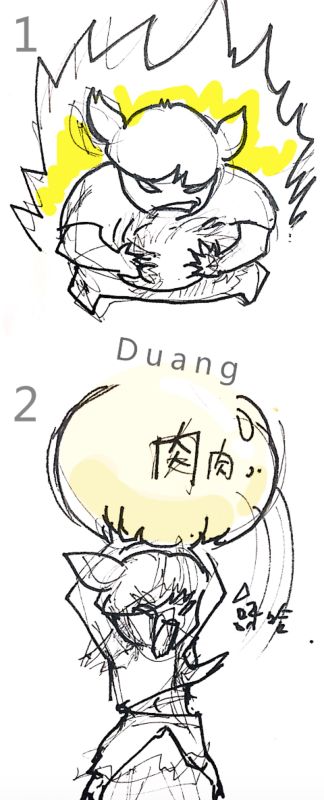 1
Duang
2
肉肉
呼哈